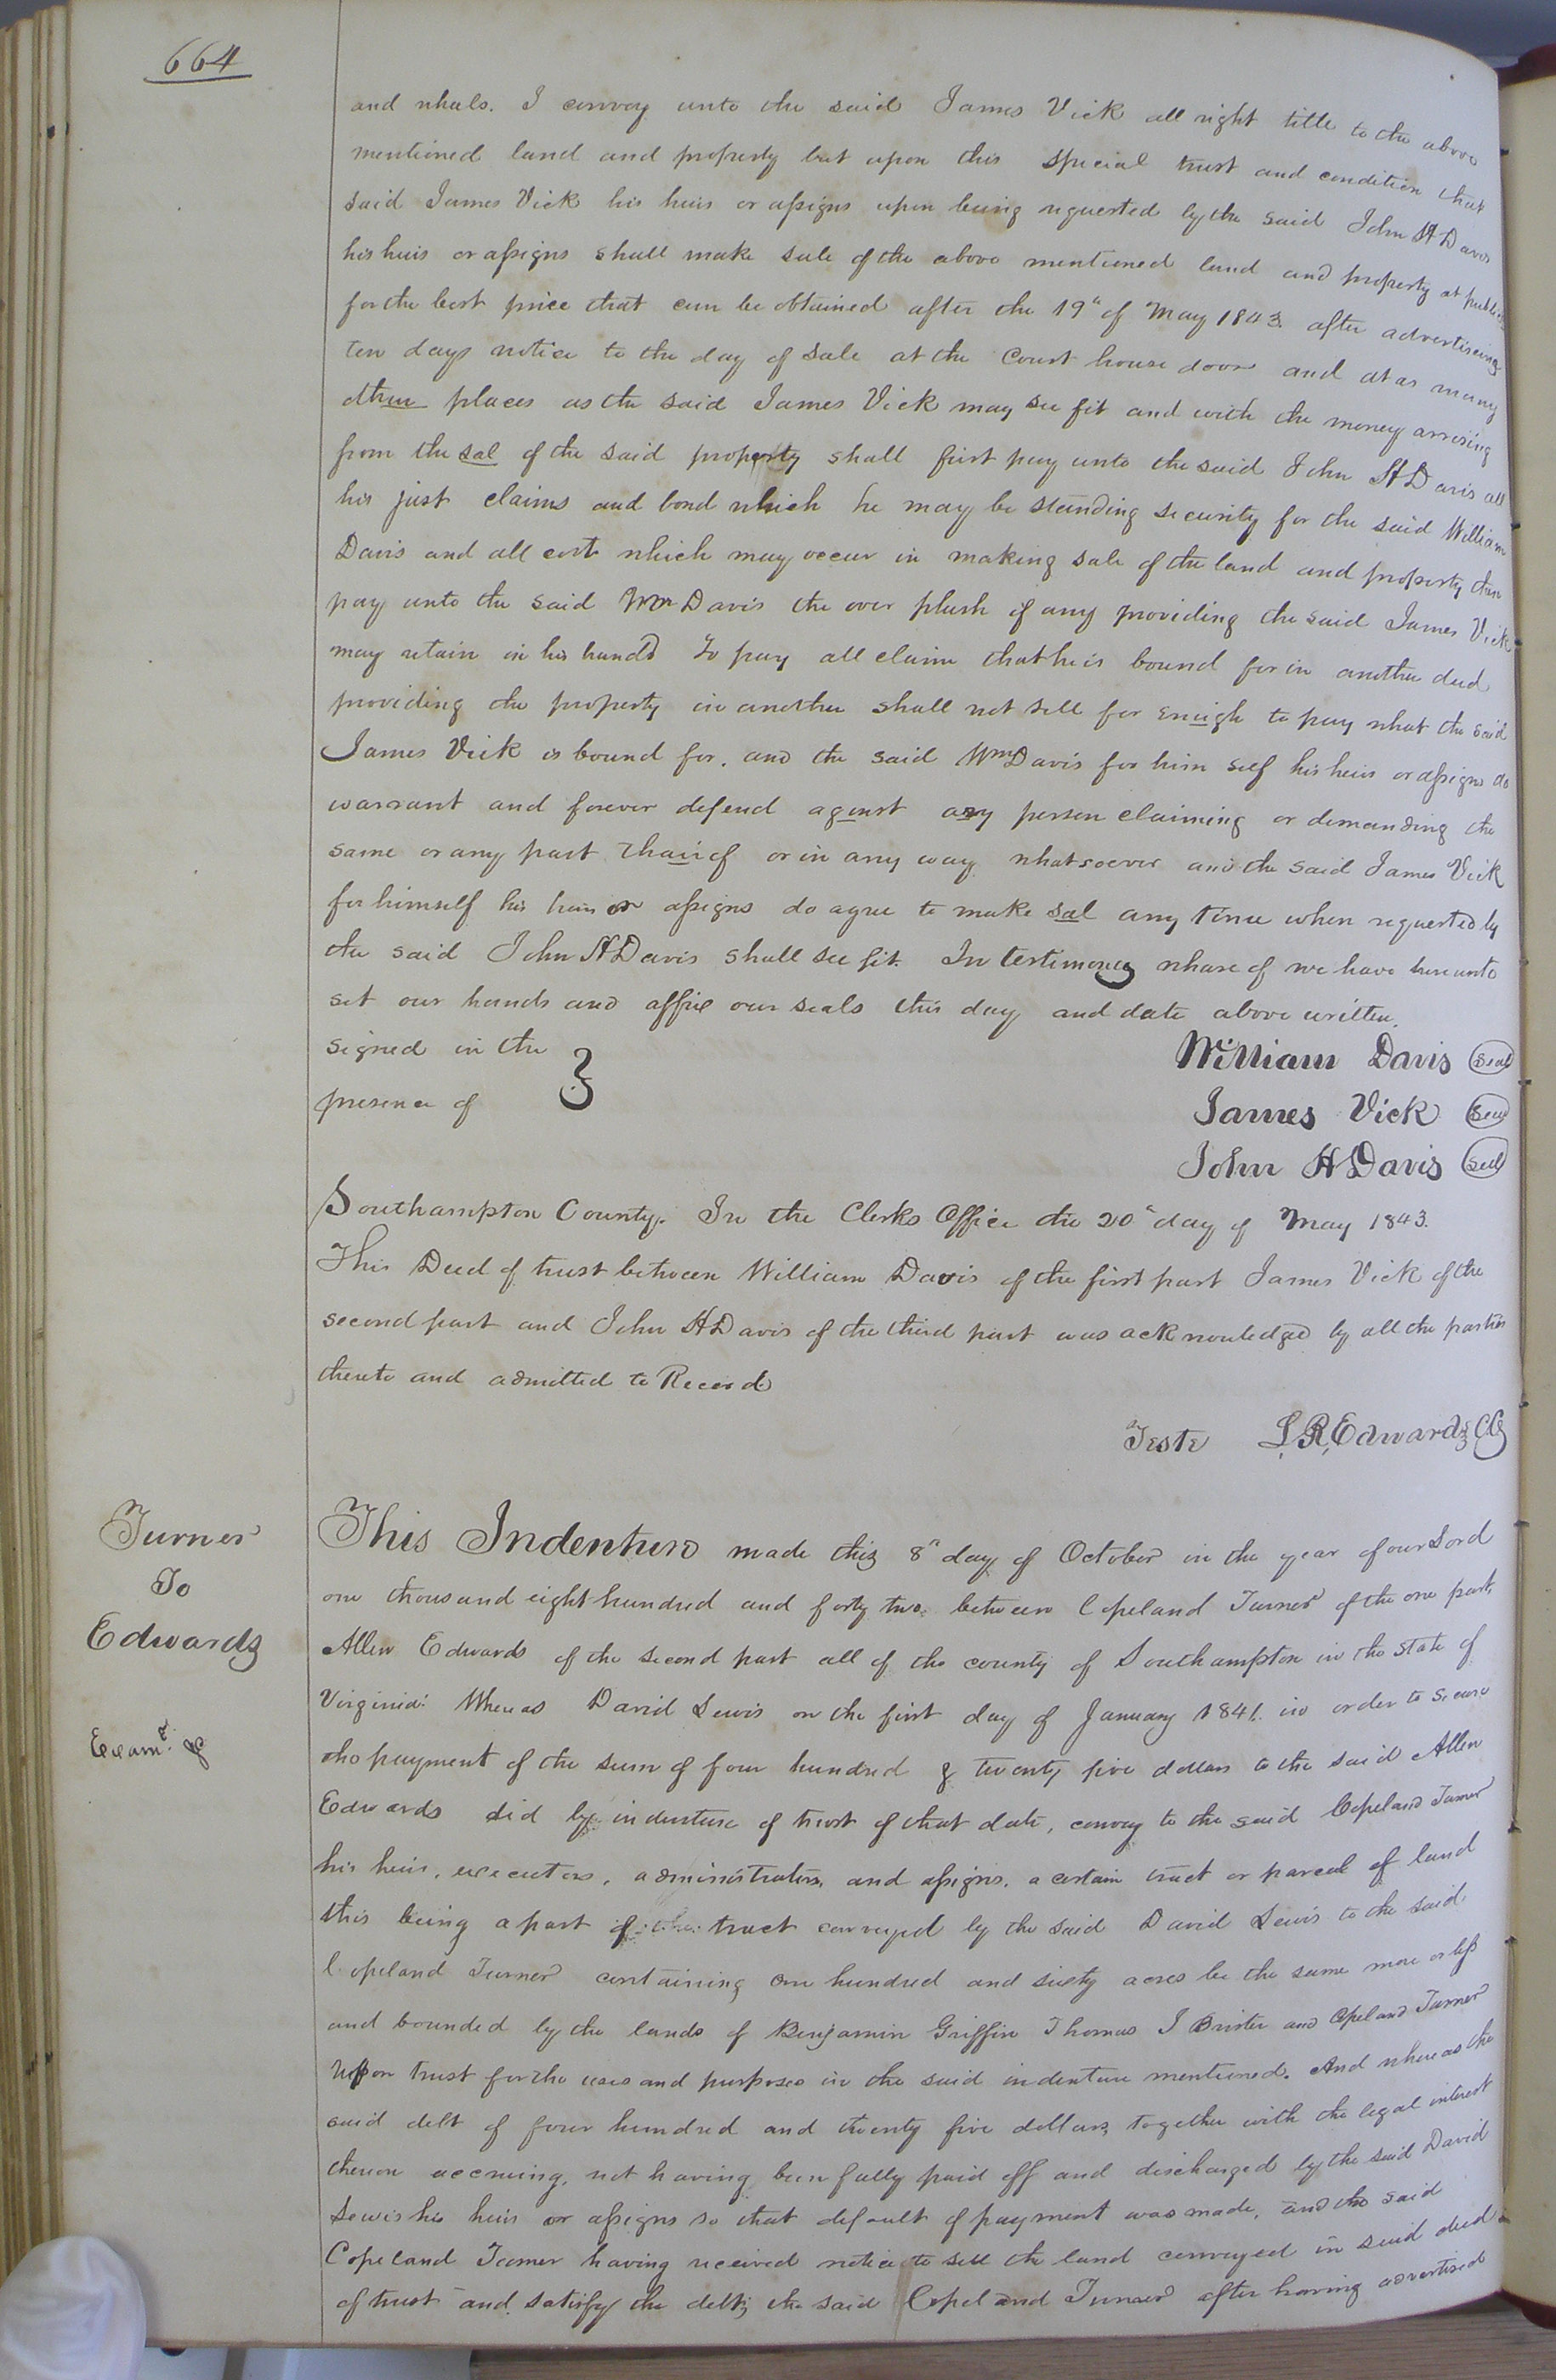 664
and wheels. I convey unto the said James Vick all right title to the above
mentioned land and property but upon this special trust and condition that
said James Vick his heirs or assigns upon being requested by the said John H Davis
his heirs or assigns shall make sale of the above mentioned land and property at public
for the best price that can be obtained after the 19" of May 1843. after advertiseing
ten days notice to the day of sale at the Court house door and at as many
other places as the said James Vick may see fit and with the money arrising
from the sal of the said property shall first pay unto the said John H Davis all
his just claims and bond which he may be standing security for the said William
Davis and all cost which may occur in making sale of the land and property then
pay unto the said Wm Davis the over plush if any providing the said James Vick
may retain in his hands to pay all claim that he is bound for in another deed
providing the property in another shall not sell for enuigh to pay what the said
James Vick is bound for. and the said Wm Davis for him self his heirs or assigns do
warrant and forever defend agenst any person claiming or demanding the
same or any part thairof or in any way whatsoever and the said James Vick
for himself his heirs or assigns do agree to make sal any time when requested by
the said John H Davis shall see fit. In testimoney whareof we have hereunto
set our hands and affix our seals this day and date above written.
signed in the
presence of
William Davis Seal
James Vick Seal
John H Davis Seal
Southampton County. In the Clerks Office the 20" day of May 1843.
This Deed of trust between William Davis of the first part James Vick of the
second part and John H Davis of the third part was acknowledged by all the parties
thereto and admitted to Record
Teste L. R. Edwards CC
Turner
To
Edwards
Examd.
This Indenture made this 8" day of October in the year of our Lord
one thousand eight hundred and forty two. between Copeland Turner of the one part,
Allen Edwards of the second part all of the county of Southampton in the State of
Virginia: Whereas David Lewis on the first day of January 1841. in order to secure
the payment of the sum of four hundred & twenty five dollars to the said Allen
Edwards did by indenture of trust of that date, convey to the said Copeland Turner
his heirs, executors, administrators, and assigns, a certain tract or parcel of land
this being a part of the tract conveyed by the said David Lewis to the said
Copeland Turner containing one hundred and sixty acres be the same more or less
and bounded by the lands of Benjamin Griffin Thomas J Brister and Copeland Turner
Upon trust for the uses and purposes in the said indenture mentioned. And whereas the
said debt of four hundred and twenty five dollars together with the legal interest
thereon accruing, not having been fully paid off and discharged by the said David
Lewis his heirs or assigns so that default of payment was made, and the said
Copeland Turner having received notice to sell the land conveyed in said deed
of trust and satisfy the debt, the said Copeland Turner after having advertised